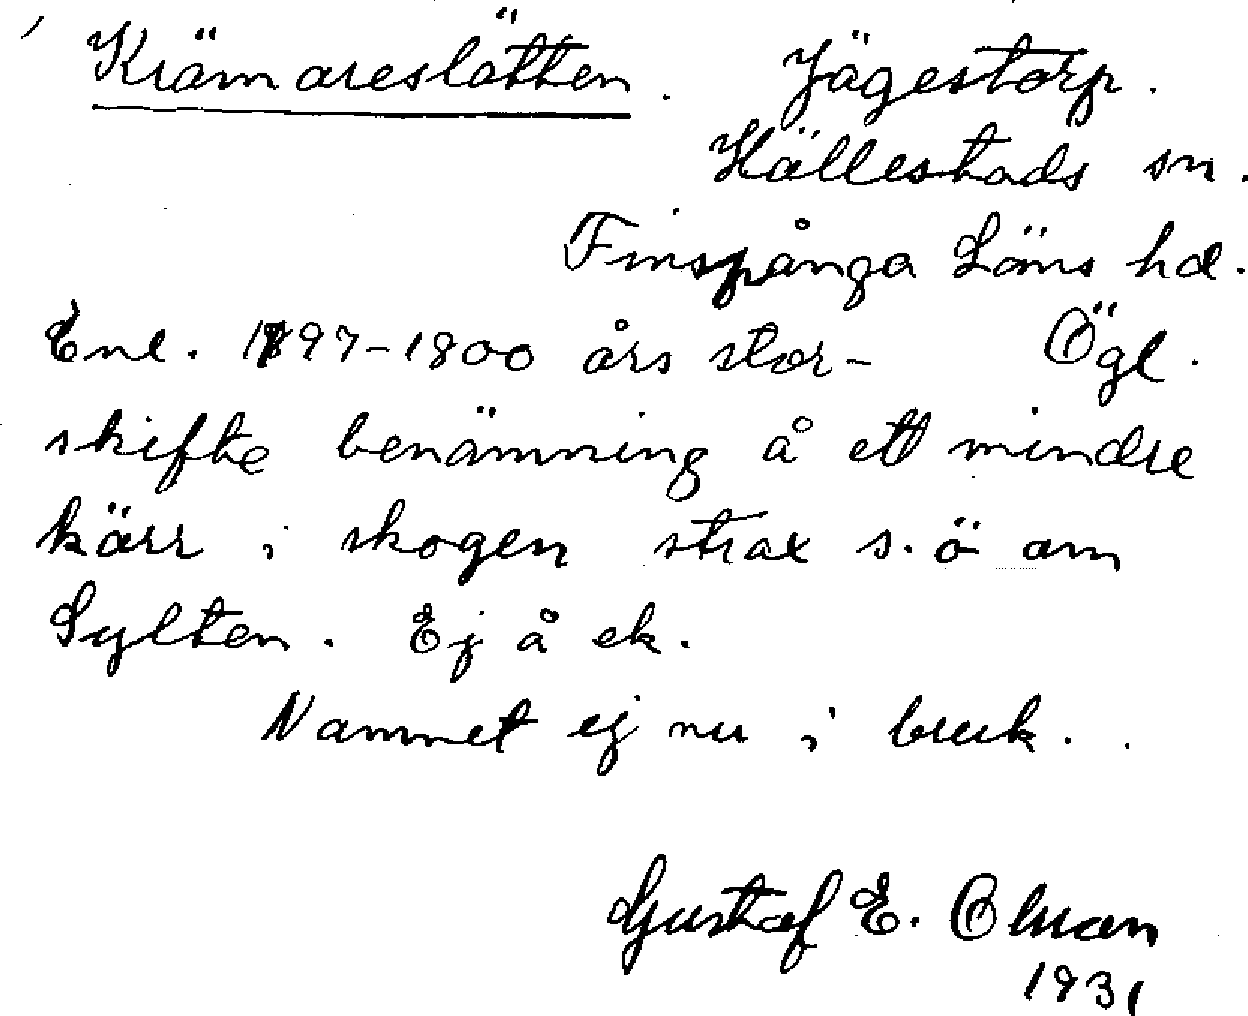 Krämareslätten. Jägestorp.
Hällestads sn.
Finspånga Läns hd.
Enl. 1797-1800 års stor- Ögl.
skifte benämning å ett mindre
kärr i skogen strax s.ö om
Sylten. Ej å ek.
Namnet ej nu i bruk.
Gustaf E.
1931